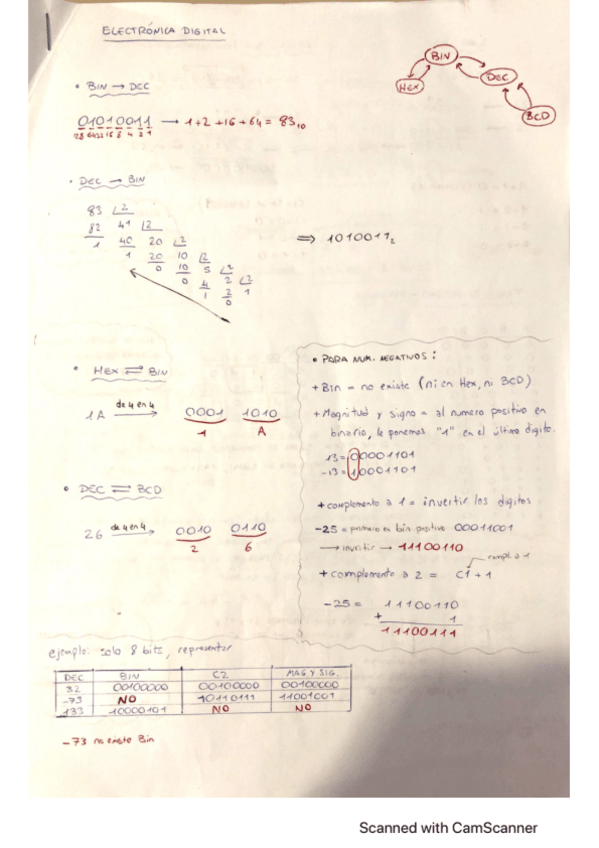 ELECTRÓNICA DIGITAL
BIN
DEC
HEX
BCD
• BIN → DEC
01010011 → 1+2+16+64 = 83₁₀
128 64 32 16 8 4 2 1
• DEC → BIN
83 2
82 41 2
1 40 20 2
1 20 10 2
0 10 5 2
0 4 2 2
1 2 1
0
⇒ 1010011₂
• HEX ⇌ BIN
1A de 4 en 4 → 0001 1010
1 A
• DEC ⇌ BCD
26 de 4 en 4 → 0010 0110
2 6
• PARA NUM. NEGATIVOS:
+ Bin = no existe (ni en Hex, ni BCD)
+ Magnitud y signo = al numero positivo en
binario, le ponemos "1" en el último digito.
13 = 00001101
-13 = 10001101
+ complemento a 1 = invertir los digitos
-25 = primero en bin positivo 00011001
→ invertir → 11100110
compl. a 1
+ complemento a 2 = C1 + 1
-25 = 11100110
+ 1
11100111
ejemplo: solo 8 bits, representar
DEC BIN C2 MAG Y SIG.
32 00100000 00100000 00100000
-73 NO 10110111 11001001
133 10000101 NO NO
-73 no existe Bin
Scanned with CamScanner